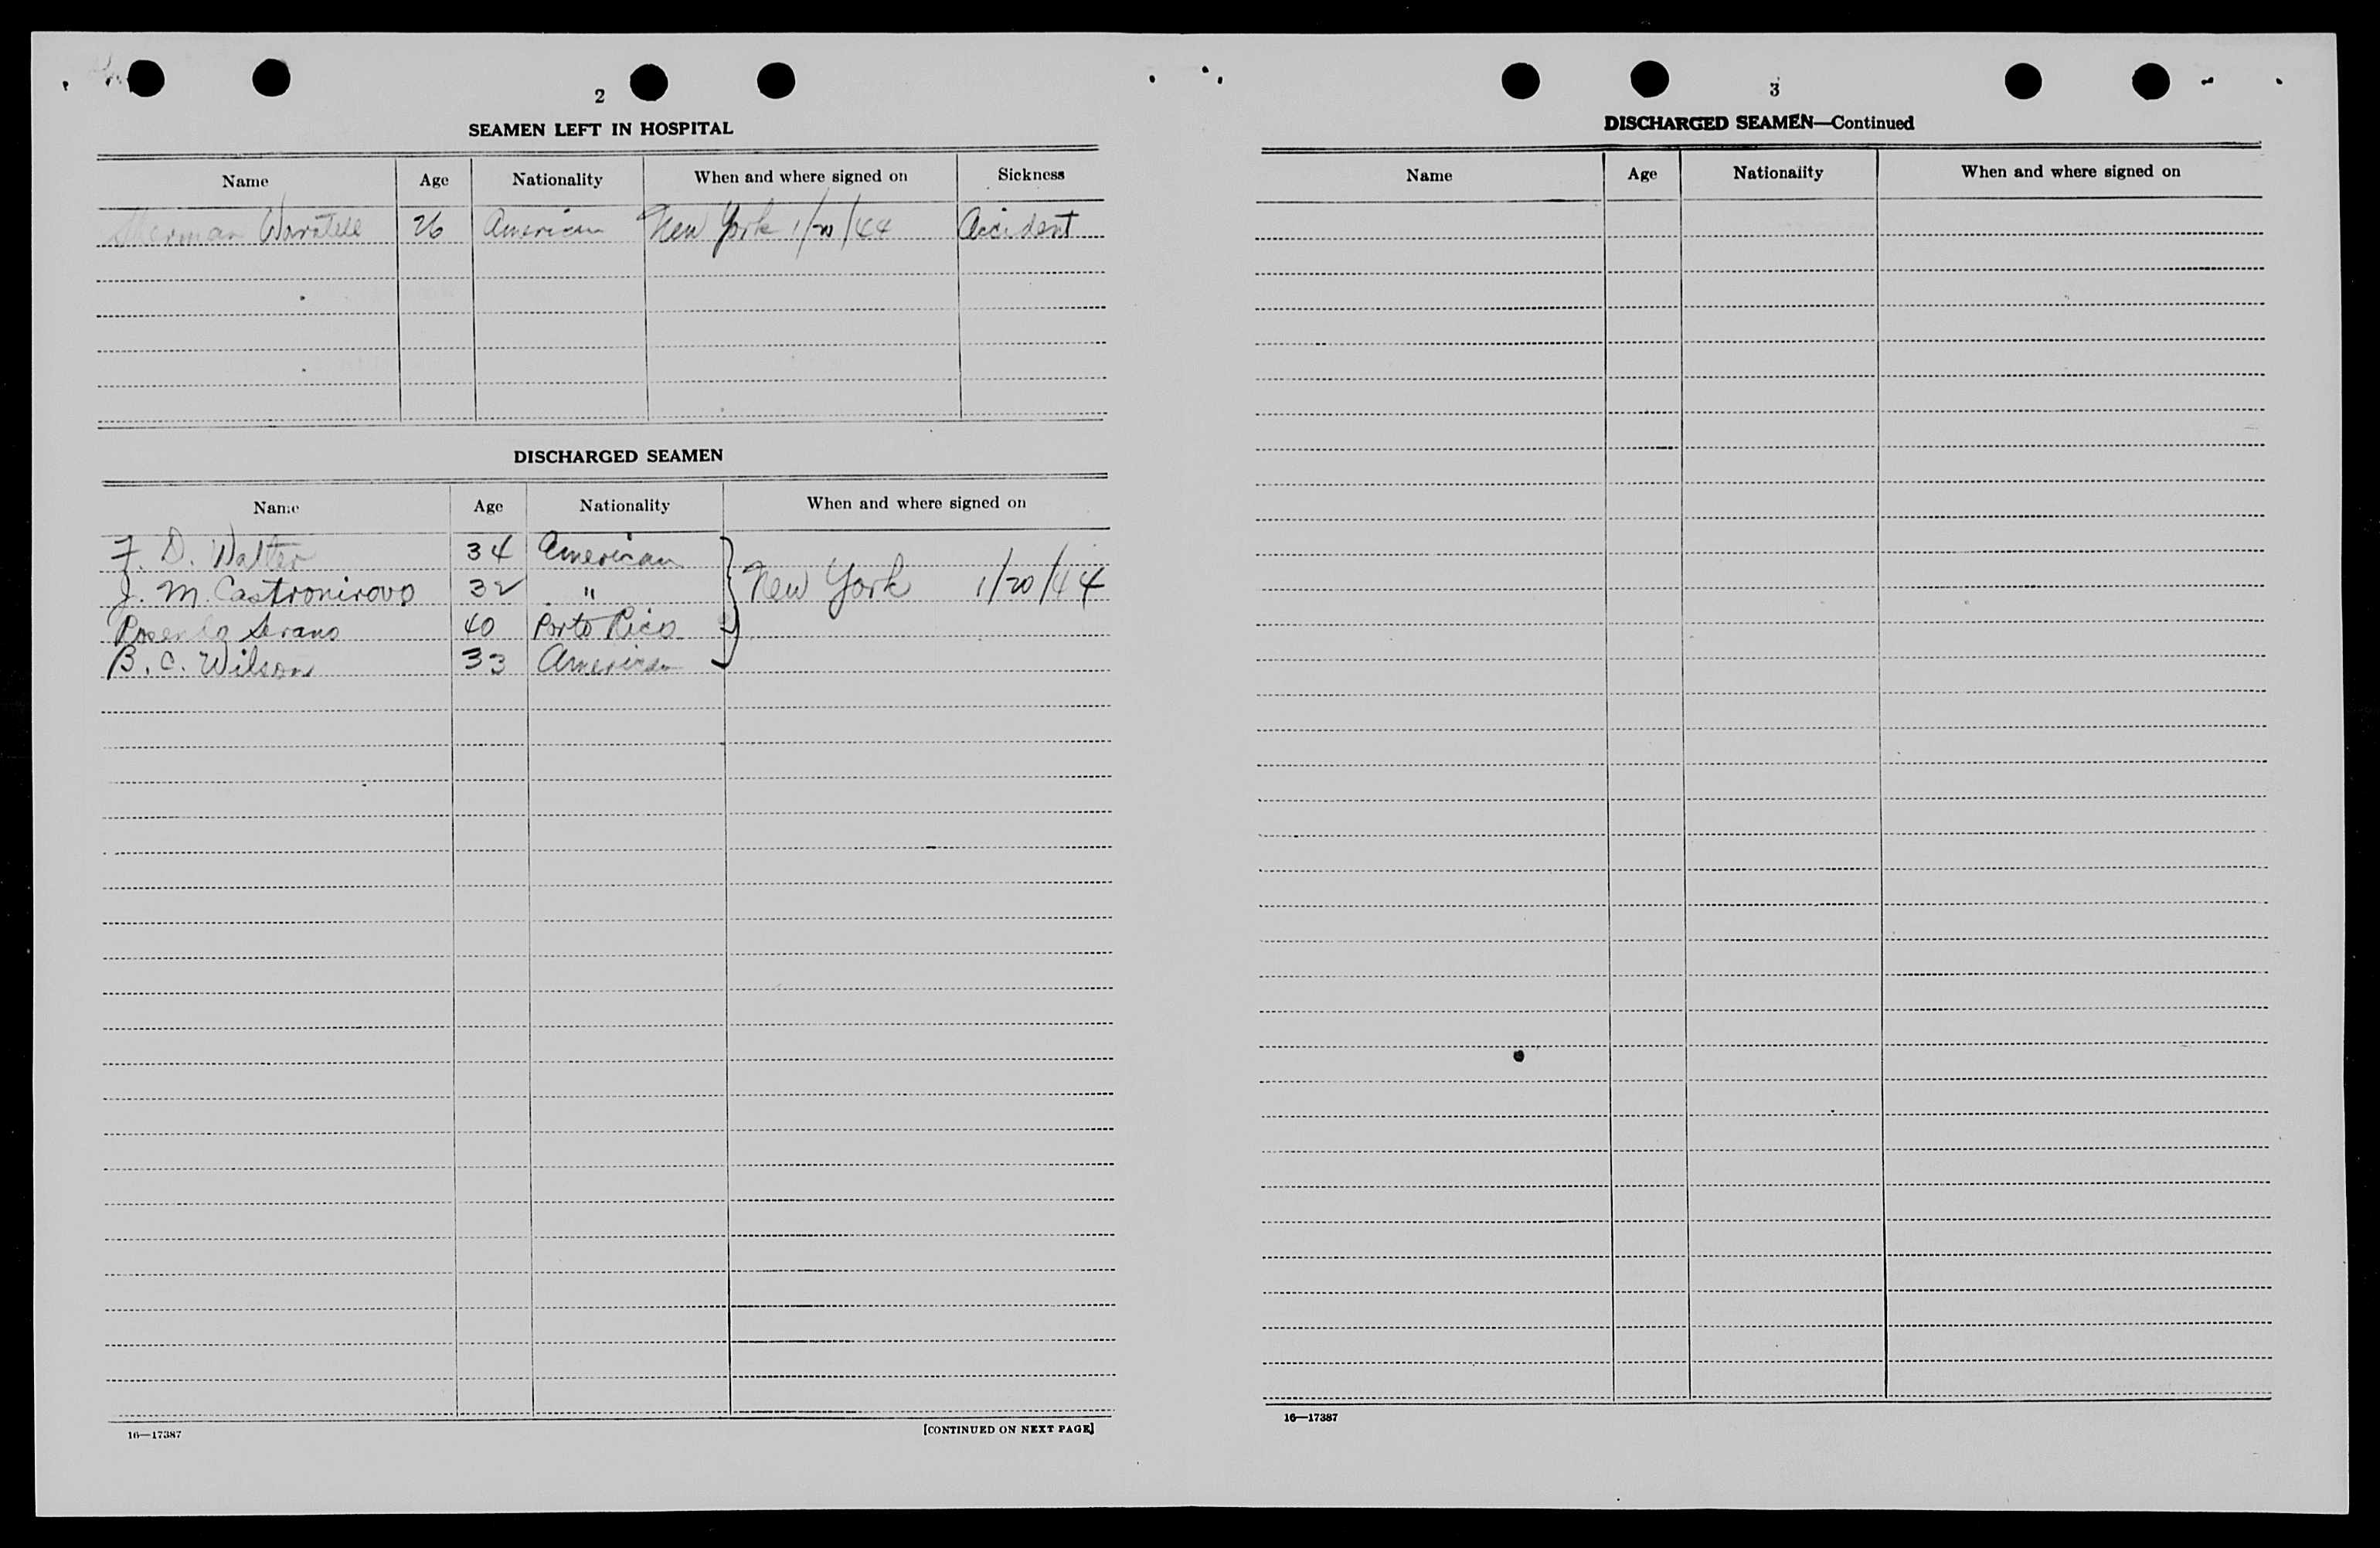 2
SEAMEN LEFT IN HOSPITAL
Name Age Nationality When and where signed on Sickness
Sherman 26 American New York 1/20/44 Accident
DISCHARGED SEAMEN
Name Age Nationality When and where signed on
F. D. Walter 34 American
J. M. Castronirovo 32 " New York 1/20/44
Serano 40 Porto Rico
B. C. Wilson 33 American
16—17387 [CONTINUED ON NEXT PAGE]
3
DISCHARGED SEAMEN—Continued
Name Age Nationality When and where signed on
16—17387